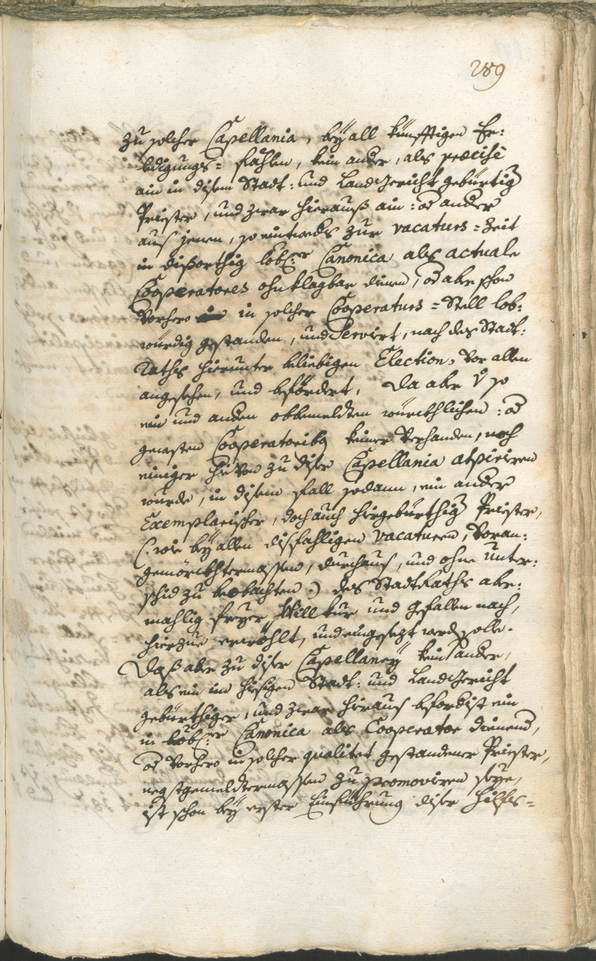 289
zu solcher Capellania, bey all künfftigen Er:
ledigungs= Fählen, kein ander, als precisè
ain in disem Stadt: und Landgericht gebürtig
Priester, und zwar hierauß ain: od ander
aus jenen, so eintweders zur vacaturs=Zeit
in dißorthig löbl: Canonica als actuale
Cooperatores ohnklagbar dienen, od aber schon
vorhero in solcher Cooperaturs=Stell lob:
würdig gestanden, und Servirt, nach des Stadt:
Raths hierunter beliebigen Election, vor allen
angesehen, und befördert, Da aber
ein und andern obbemeldten würckhlichen: od
gewesten Cooperatoribus keiner verhanden, noch
einiger hievon zu diser Capellania aspiriren
wurde, in disem Fall sodann, ein ander
Exemplarischer, doch auch hiegebürthig Priester,
(: wie bey allen disfahligen vacaturen, voran:
gemörckhtermassen, durchaus, und ohne Unter:
schid zu beobachten :) des StadtRaths aber:
mahlig freyer Willkur und Gefallen nach,
hierzue erwöhlt, und eingesezt werd solle.
Daß aber zu diser Capellaney kein ander,
als ein im hiesigen Stadt: und Landgericht
gebürthiger, und zwar hieraus ein
in löbl: Canonica als Cooperator dienend,
od vorhero in solcher qualitet gestandener Priester,
negstgemeldtermassen zu promoviren seye,
ist schon bey erster Einführung diser Hilfs=